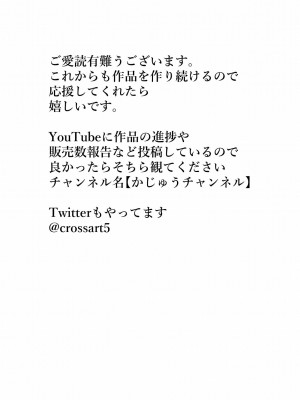 ご愛読有難うございます。
これからも作品を作り続けるので
応援してくれたら
嬉しいです。
YouTubeに作品の進捗や
販売数報告など投稿しているので
良かったらそちら観てください
チャンネル名【かじゅうチャンネル】
Twitterもやってます
@crossart5